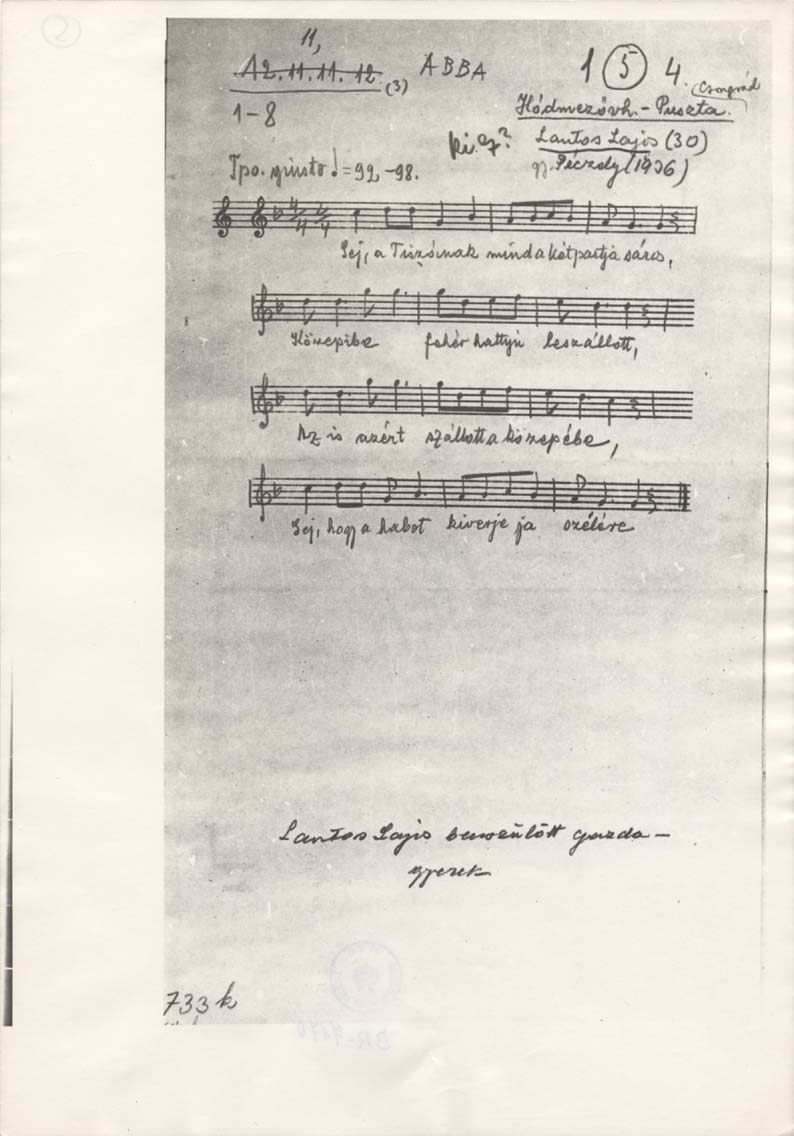 2
11,
12. 11. 11. 12. (3)
ABBA
1 5 4.
Csongrád
1-8
Hódmezövh. - Puszta.
ki ez?
Lantos Lajos (30)
gy. Péczely (1936)
Tpo. giusto ♩ = 92-98.
4/4 2/4
Sej, a Tiszának mind a két partja sáros,
Közepibe fehér hattyú leszállott,
Az is azért szállott a közepébe,
Sej, hogy a habot kiverje ja szélére
Lantos Lajos beszülött gazda-
gyerek
733 k